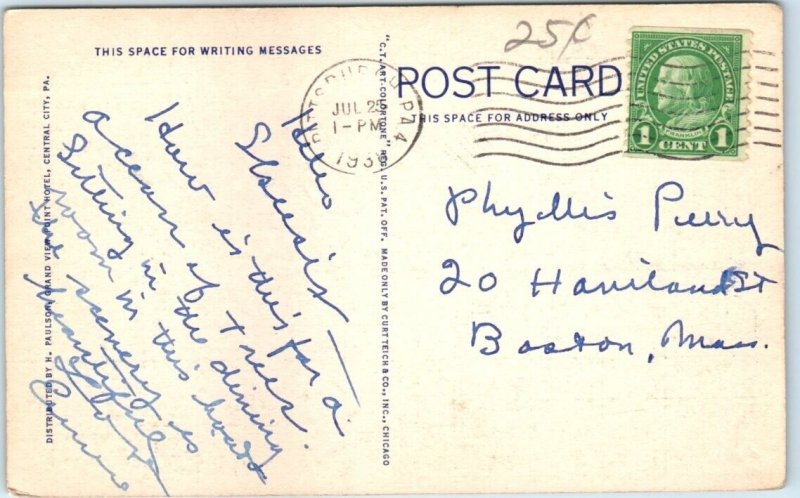 THIS SPACE FOR WRITING MESSAGES
25¢
POST CARD
THIS SPACE FOR ADDRESS ONLY
PITTSBURGH, PA 4
JUL 25
1-PM
193
UNITED STATES POSTAGE
FRANKLIN
1 CENT 1
Hello
How is this for a
ocean of trees.
Sitting in the dining
room in this boat
the scenery is
beautiful
Love
Phyllis Perry
20 Haviland St
Boston, Mass.
DISTRIBUTED BY H. PAULSON, GRAND VIEW POINT HOTEL, CENTRAL CITY, PA.
"C.T. ART-COLORTONE" REG. U.S. PAT. OFF. MADE ONLY BY CURT TEICH & CO., INC., CHICAGO